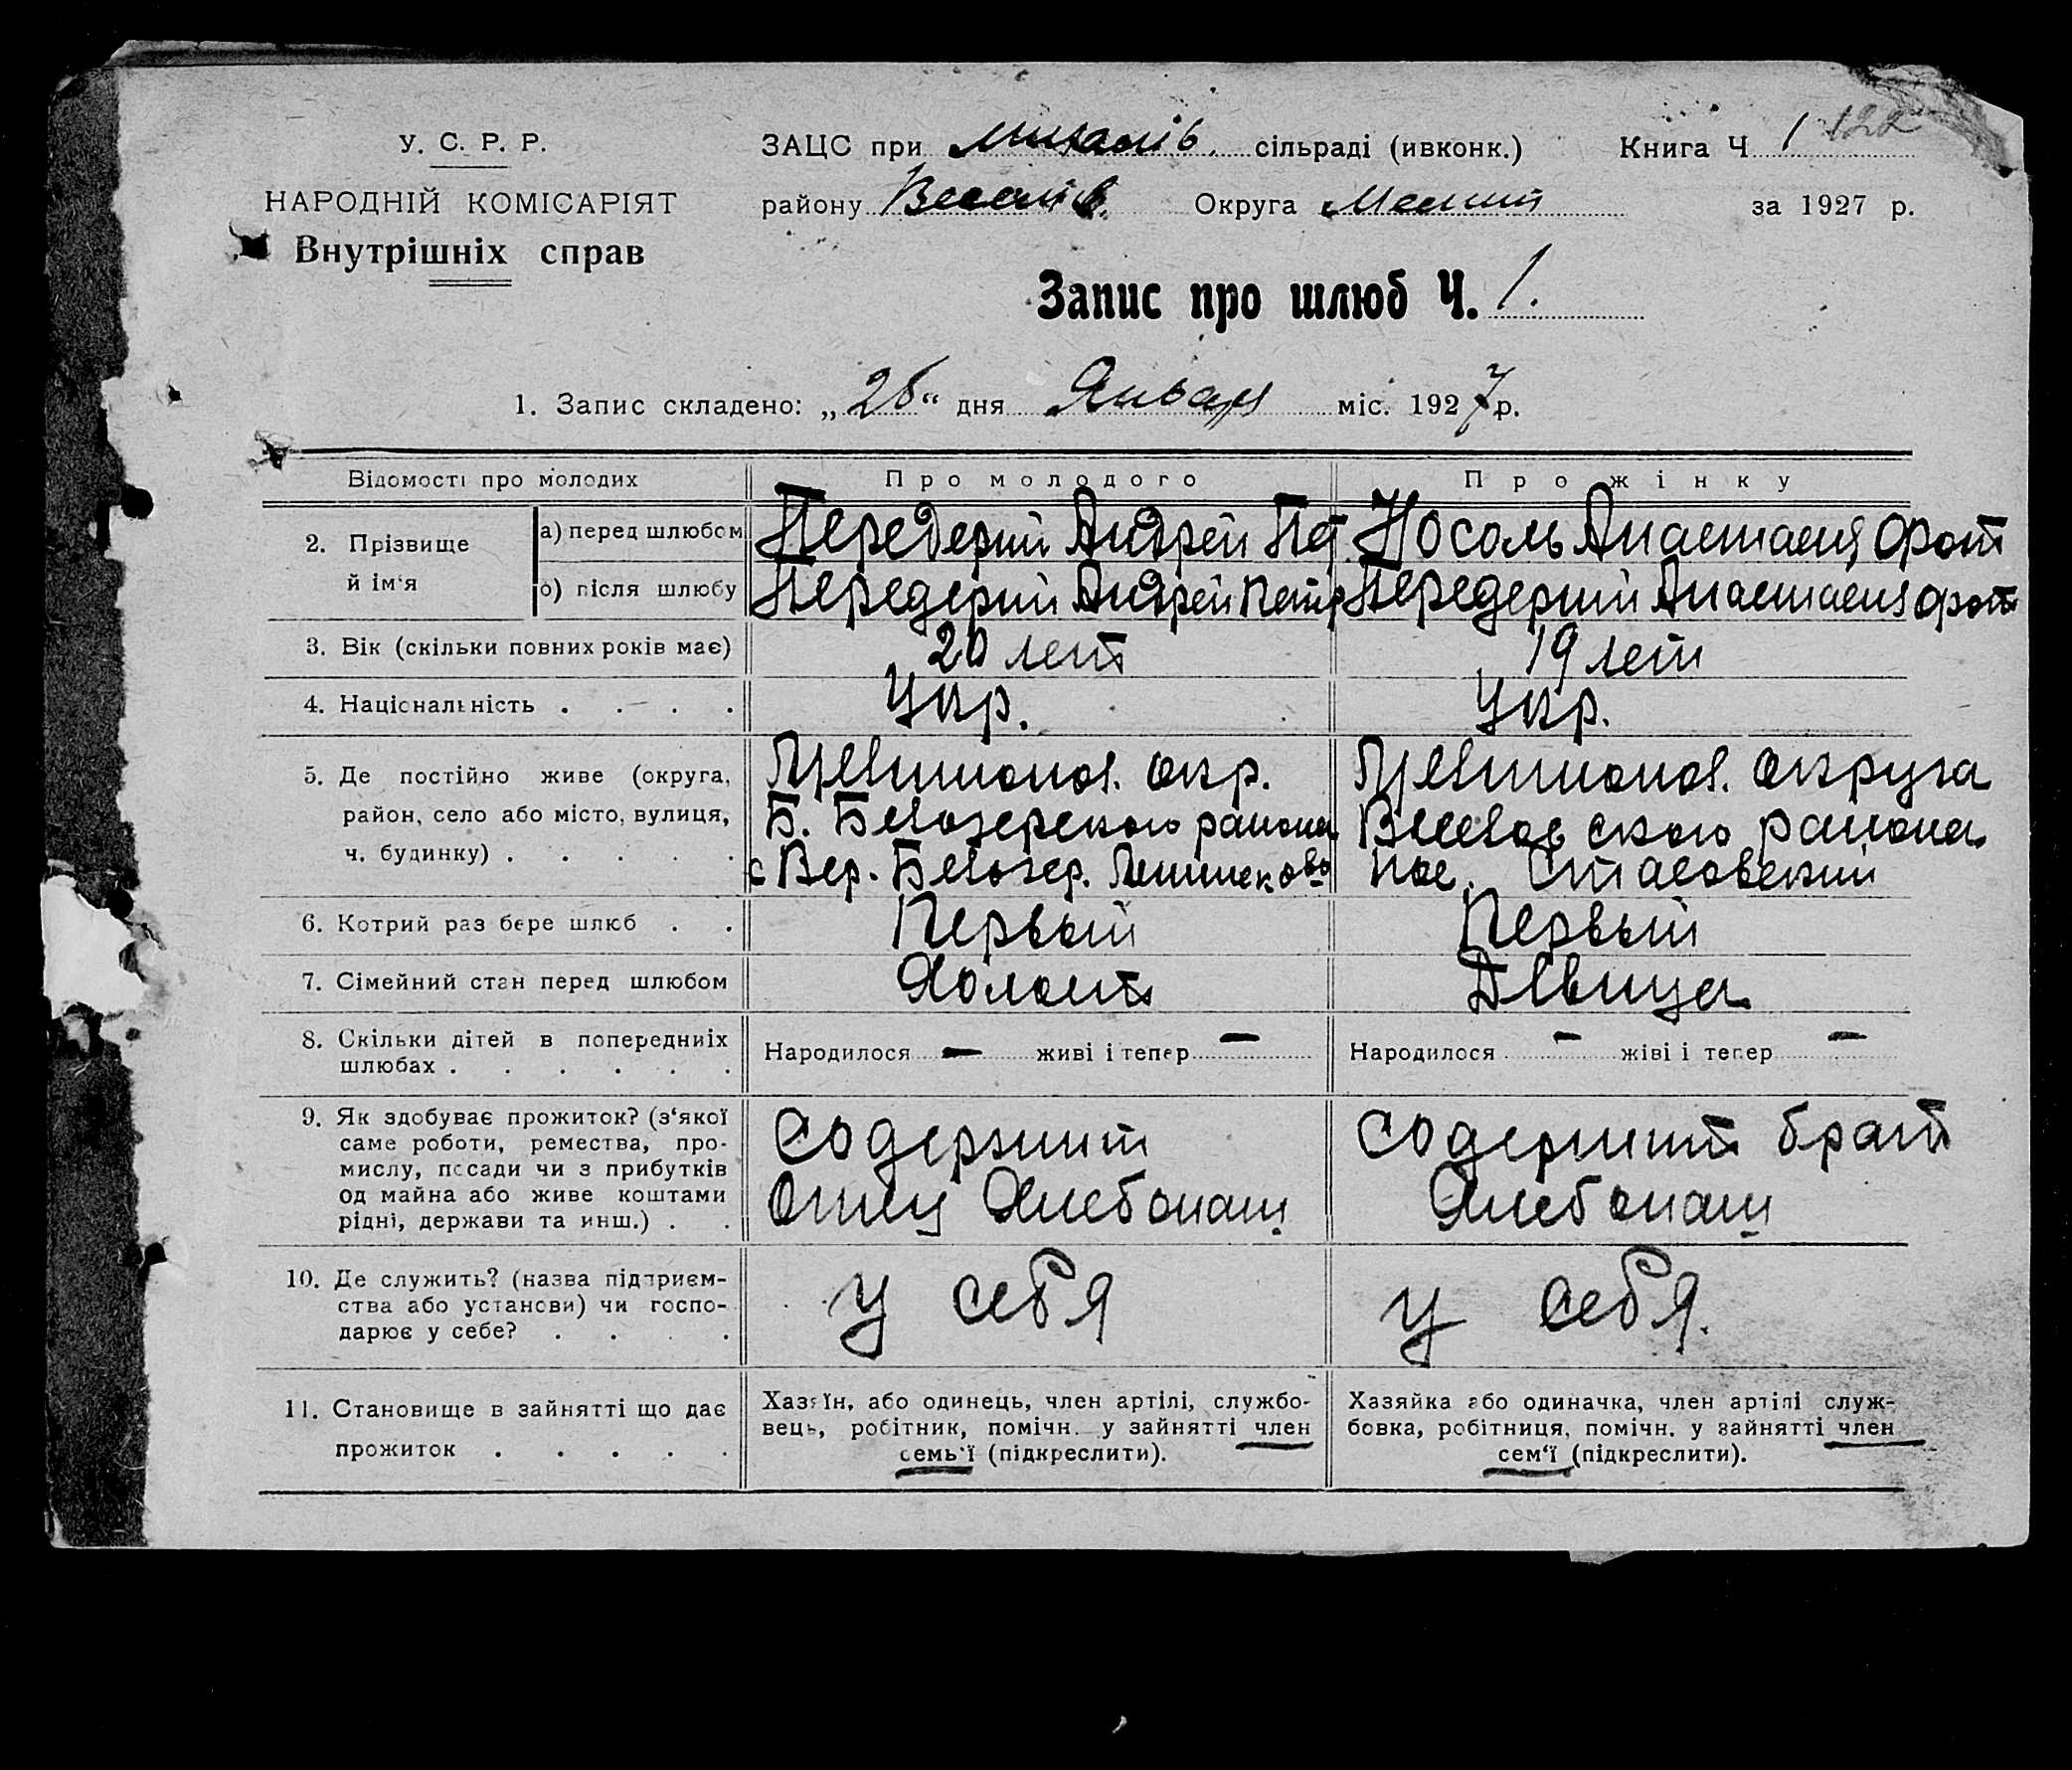 У. С. Р. Р.
НАРОДНІЙ КОМІСАРІЯТ
Внутрішніх справ
ЗАЦС при Михайлів. сільраді (ивконк.) Книга Ч 1 122
району Веселів. Округа Мелит за 1927 р.
Запис про шлюб Ч. 1.
1. Запис складено: „26“ дня Января міс. 1927 р.
Відомості про молодих Про молодого Про жінку
2. Прізвище й ім'я
а) перед шлюбом Передерий Андрей Пет Носоль Анастасия Фот
б) після шлюбу Передерий Андрей Петр Передерий Анастасия Фот
3. Вік (скільки повних років має) 20 лет 19 лет
4. Національність . . . . Укр. Укр.
5. Де постійно живе (округа, район, село або місто, вулиця, ч. будинку) . . . . .
Мелитопол. окр.
Б. Белозерского района
с Вер. Белозер.
Мелитопол. округа
Веселовского района
пос.
6. Котрий раз бере шлюб . . Первый Первый
7. Сімейний стан перед шлюбом Холост Девица
8. Скільки дітей в попередниіх шлюбах . . . . . .
Народилося — живі і тепер —
Народилося — жіві і тепер —
9. Як здобуває прожиток? (з'якої
саме роботи, ремества, про-
мислу, посади чи з прибутків
од майна або живе коштами
рідні, держави та инш.) . .
Содержит
Отец Хлебопаш
Содержит брат
Хлебопаш
10. Де служить? (назва підприєм-
ства або установи) чи госпо-
дарює у себе? . . . .
у себя
у себя.
11. Становище в зайнятті що дає
прожиток . . . . .
Хазяїн, або одинець, член артілі, службо-
вець, робітник, помічн. у зайнятті член
семь'ї (підкреслити).
Хазяйка або одиначка, член артілі служ-
бовка, робітниця, помічн. у зайнятті член
сем'ї (підкреслити).